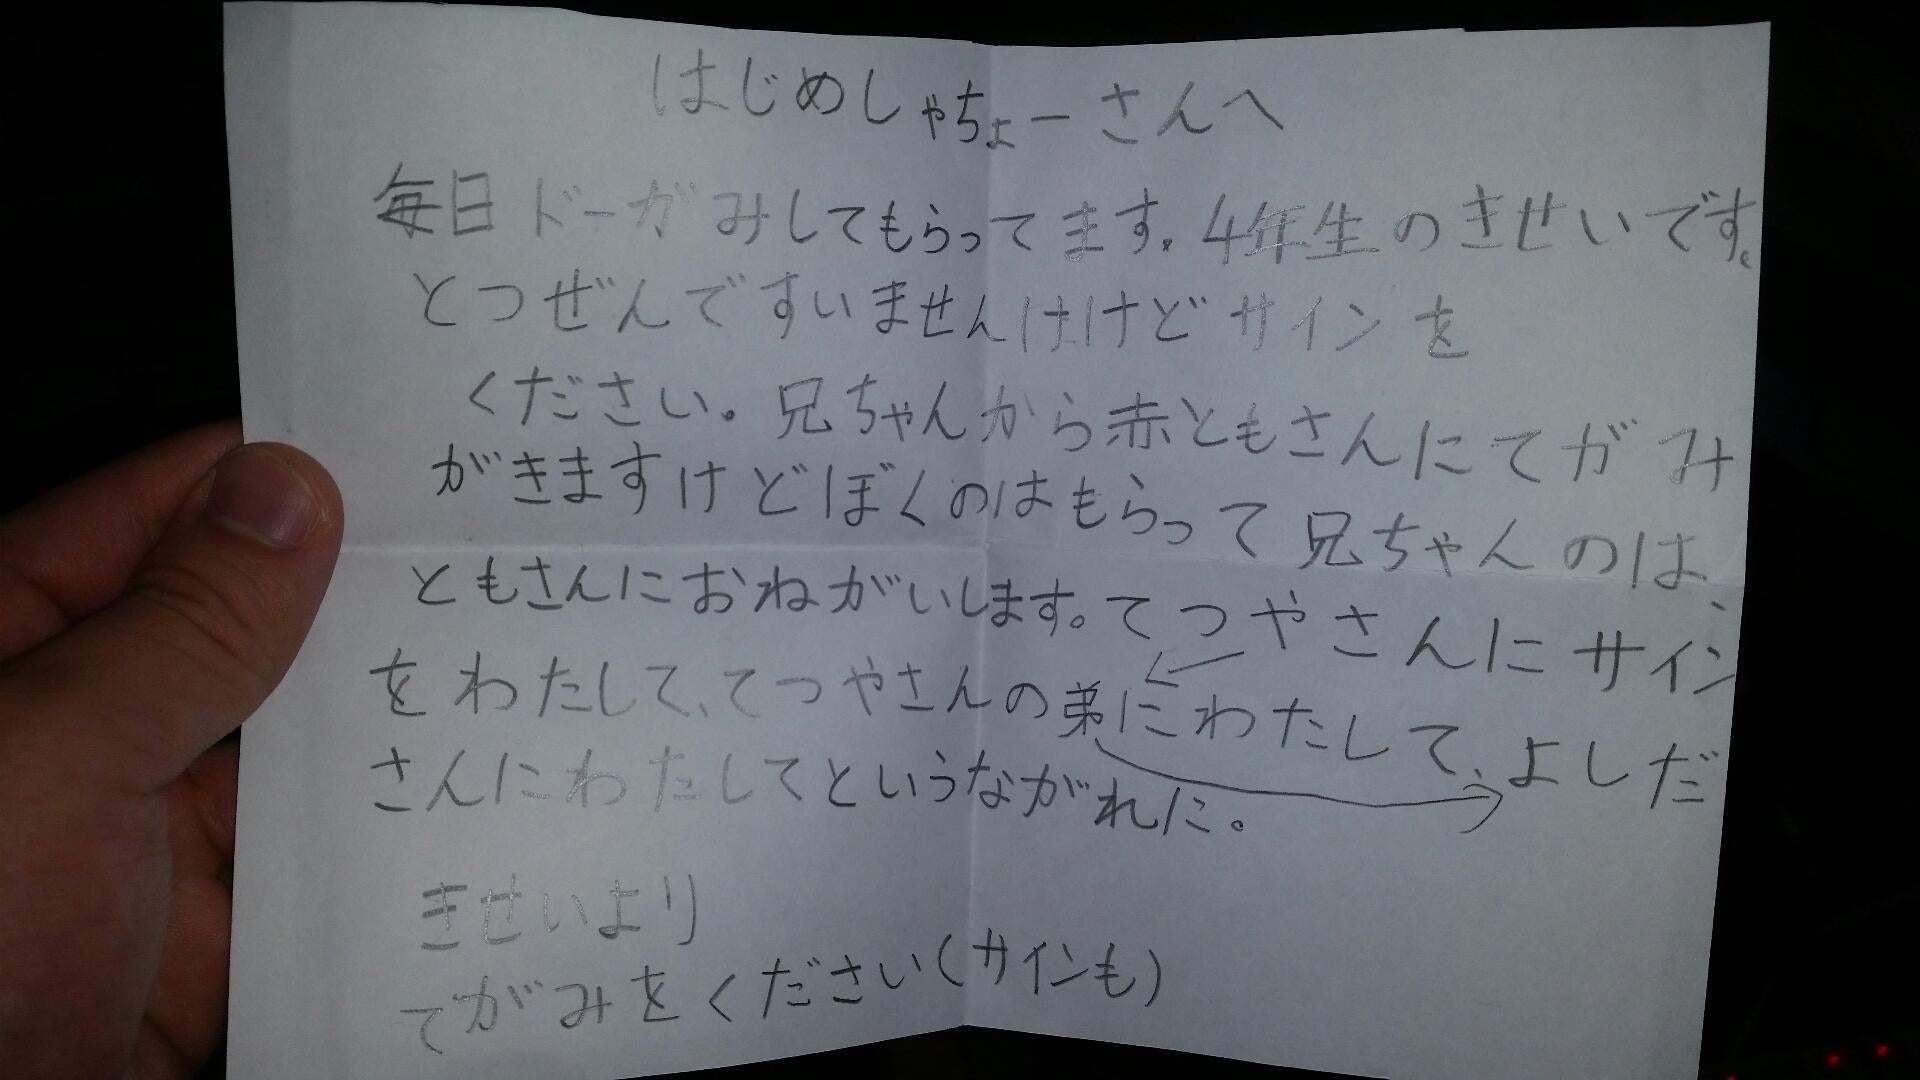 はじめしゃちょーさんへ
毎日ドーガみしてもらってます。4年生のきせいです。
とつぜんですいませんけけどサインを
ください。兄ちゃんから赤ともさんにてがみ
がきますけどぼくのはもらって兄ちゃんのは、
ともさんにおねがいします。てつやさんにサイン
をわたして、てつやさんの弟にわたして、よしだ
さんにわたしてというながれに。
きせいより
てがみをください(サインも)